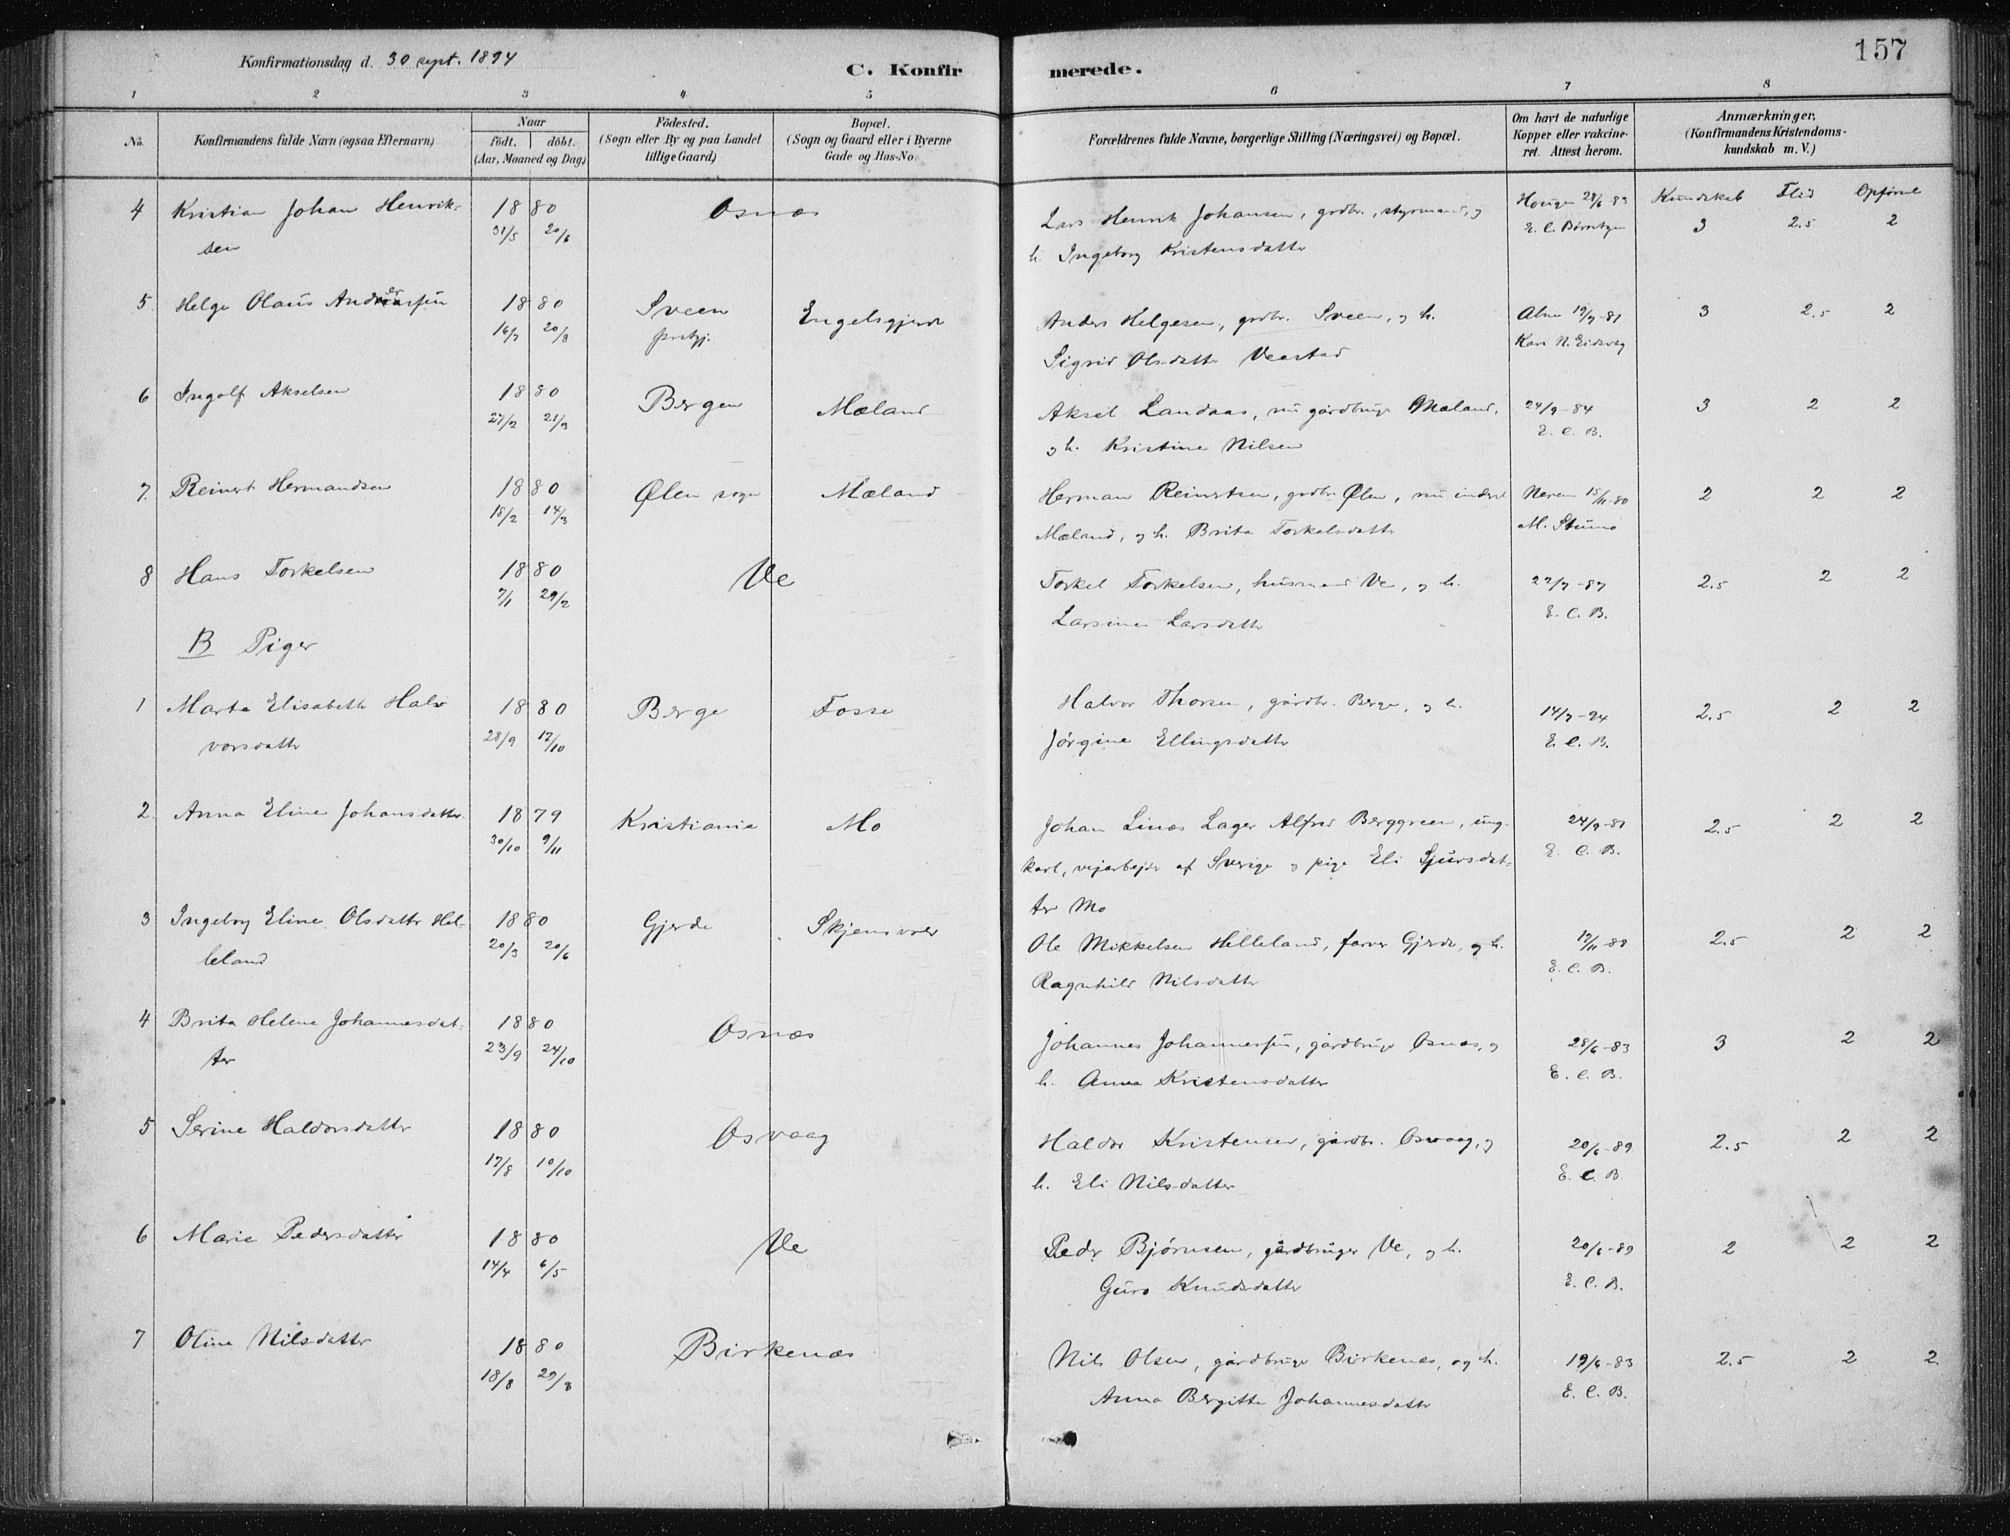 157
Konfirmationsdag d. 30 sept. 1894
C. Konfirmerede.
1 2 3 4 5 6 7 8
No. Konfirmandens fulde Navn (ogsaa Efternavn) Naar født. døbt. (Aar, Maaned og Dag) Fødested. (Sogn eller By og paa Landet tillige Gaard) Bopæl. (Sogn og Gaard eller i Byerne Gade og Hus-No. Forældrenes fulde Navne, borgerlige Stilling (Næringsvei) og Bopæl. Om havt de naturlige Kopper eller vakcineret. Attest herom. Anmærkninger. (Konfirmandens Kristendomskundskab m. V.)
Kundskab Flid Opførsel
4 Kristian Johan Henrik- 1880 Osnæs Lars Henrik Johansen, grdbr., styrmand, og 28/6 83 3 2.5 2
sen 31/5 20/6 h. Ingeborg Kristensdatter E. C.
5 Helge Olaus Andersen 1880 Sveen Engelsgjerde Anders Helgesen, grdbr. Sveen, og h. 19/7-81 3 2.5 2
16/7 20/8 prstgj. Sigrid Olsdatter Veastad Kari N. Eidsvåg
6 Ingolf Akselsen 1880 Bergen Mæland Aksel Landaas, nu gårdbruger Mæland, 24/9-84 3 2 2
27/2 21/3 og h. Kristine Nilsen E. C. B.
7. Reinert Hermandsen 1880 Ølen sogn Mæland Herman Reinertsen, grdbr. Ølen, nu inderst 15/11-80 2 2 2
18/2 14/3 Mæland, og h. Brita Torkelsdatter M. Stumo
8 Hans Torkelsen 1880 Ve Torkel Torkelsen, husmand Ve, og h. 22/7-87 2.5 2 2
7/1 29/2 Larsine Larsdatter E. C. B.
B Piger
1 Marta Elisabeth Hal- 1880 Berge Fosse Halvor Thorsen, gårdbr. Berge, og h. 14/7-94 2.5 2 2
vorsdatter 28/9 17/10 Jørgine Ellingsdatter E. C. B.
2. Anna Eline Johansdatter 1879 Kristiania Mo Johan Linas Lager Alfred Berggreen, ung- 24/9-81 2.5 2 2
30/10 9/11 karl, vejarbejder af Sverige og pige Eli Sjursdat- E. C. B.
ter Mo
3 Ingeborg Eline Olsdatter Hel- 1880 Gjerde Skjensvoer Ole Mikkelsen Helleland, farver Gjerde, og h. 2.5 2 2
leland 20/3 20/6 Ragnhild Nilsdatter E. C. B.
4 Brita Helene Johannesdat- 1880 Osnæs Johannes Johannessen, gårdbruger Osnæs, og 28/6-83 3 2 2
ter 23/9 24/10 h. Anna Kristensdatter E. C. B.
5 Serine Haldorsdatter 1880 Osvaag Haldor Kristensen, gårdbr. Osvaag, og 20/6-89 2.5 2 2
17/8 10/10 h. Eli Nilsdatter E. C. B.
6 Marie Pedersdatter 1880 Ve Peder Bjørnsen, gårdbruger Ve, og h. 20/6-89 2 2 2
14/4 6/5 Guro Knudsdatter E. C. B.
7 Oline Nilsdatter 1880 Birkenæs Nils Olsen, gårdbruger Birkenæs, og h. 19/6-83 2.5 2 2
18/8 29/8 Anna Bergitte Johannesdatter E. C. B.